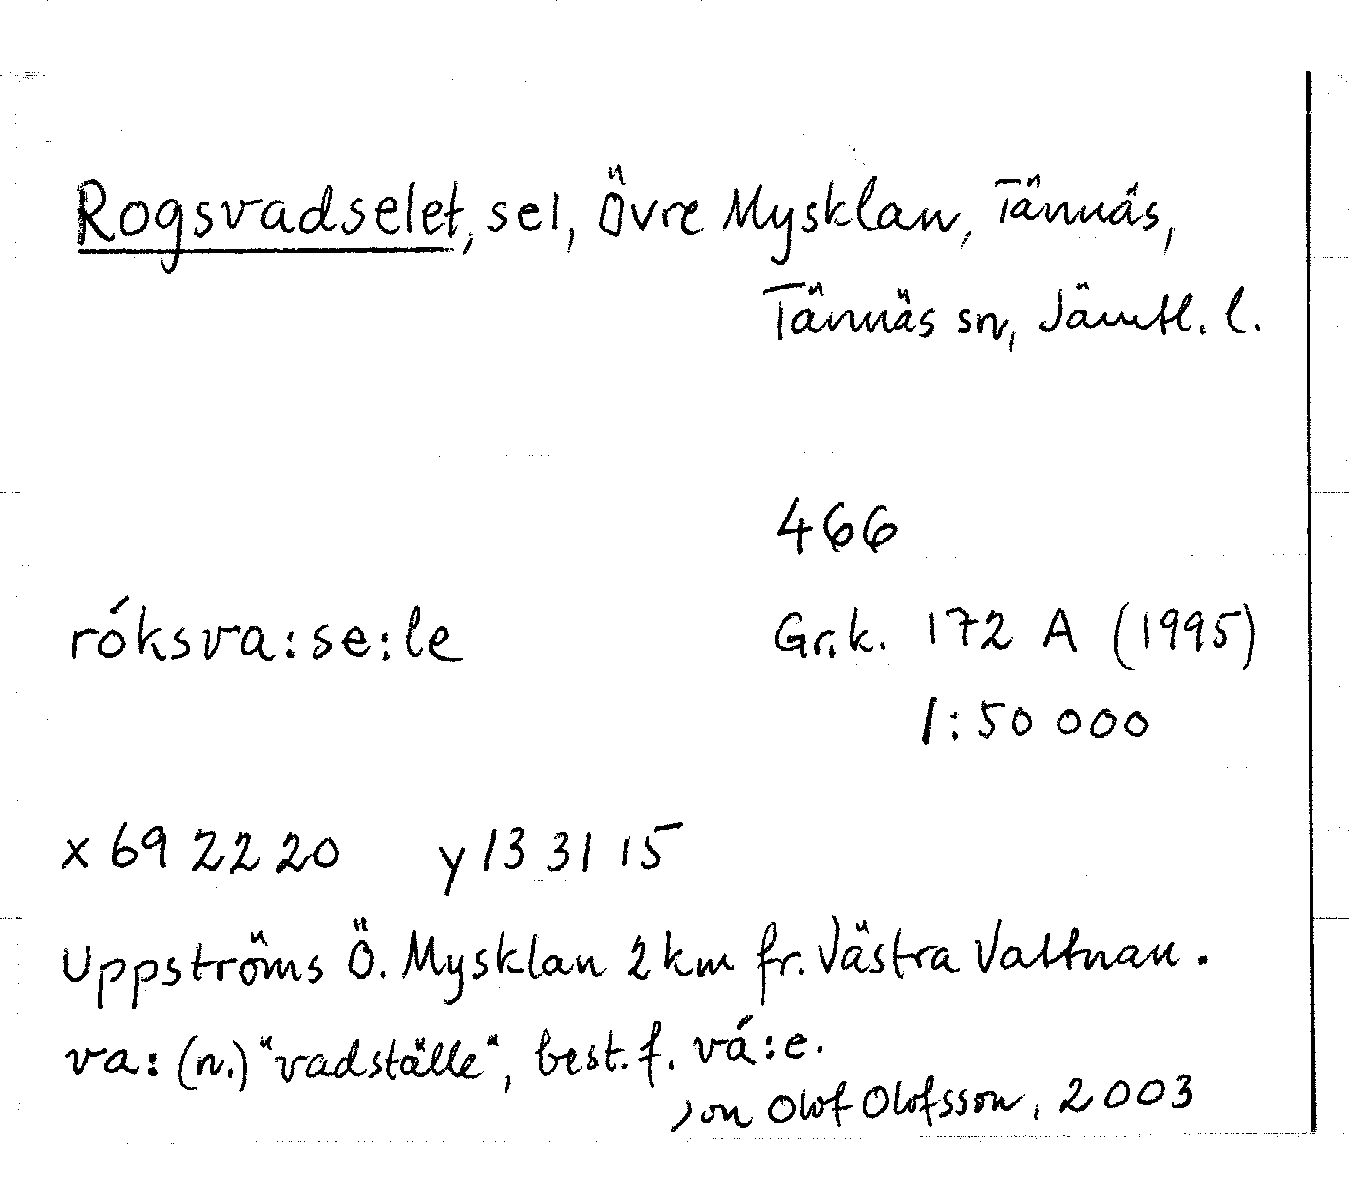 Rogsvadselet, sel, Övre Mysklan, Tännäs,
Tännäs sn, Jämtl. l.
466
róksva:se:le
Gr.k. 172 A (1995)
1:50 000
x 69 22 20 y 13 31 15
Uppströms Ö. Mysklan 2 km fr. Västra Vattnan.
va: (n.) "vadställe", best. f. vá:e.
Jon Olof Olofsson, 2003